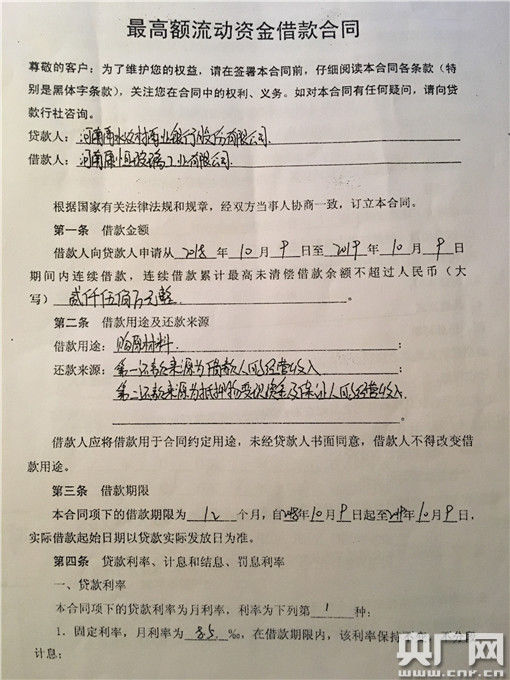 最高额流动资金借款合同
尊敬的客户：为了维护您的权益，请在签署本合同前，仔细阅读本合同各条款（特
别是黑体字条款），关注您在合同中的权利、义务。如对本合同有任何疑问，请向贷
款行社咨询。
贷款人：河南商水农村商业银行股份有限公司
借款人：河南康恒玻璃工业有限公司
根据国家有关法律法规和规章，经双方当事人协商一致，订立本合同。
第一条 借款金额
借款人向贷款人申请从 2018 年 10 月 9 日至 2019 年 10 月 9 日
期间内连续借款，连续借款累计最高未清偿借款余额不超过人民币（大
写）贰仟伍佰万元整。
第二条 借款用途及还款来源
借款用途：购原材料；
还款来源：第一还款来源为借款人的经营收入
第二还款来源为抵押物变现资金及保证人的经营收入
。
借款人应将借款用于合同约定用途，未经贷款人书面同意，借款人不得改变借
款用途。
第三条 借款期限
本合同项下的借款期限为 12 个月，自2018年10月9日起至2019年10月9日，
实际借款起始日期以贷款实际发放日为准。
第四条 贷款利率、计息和结息、罚息利率
一、贷款利率
本合同项下的贷款利率为月利率，利率为下列第 1 种：
1．固定利率，月利率为 8.5 ‰，在借款期限内，该利率保持
计息；
央广网
www.cnr.cn